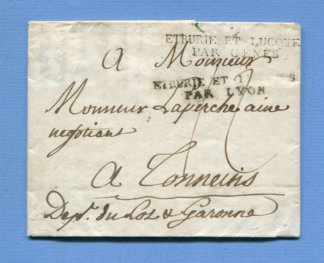 ETRURIE ET LUCQUE
PAR GENES
A Monsieur
ETRURIE ET
PAR LYON
Monsieur Laperche aine
negotiant
A Tonneins
Dep.t du Lot & Garonne